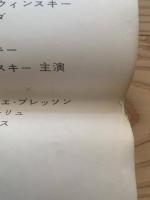 ウィンスキー
ダ
キー
スキー 主演
エ・ブレッソン
ーリュ
ス